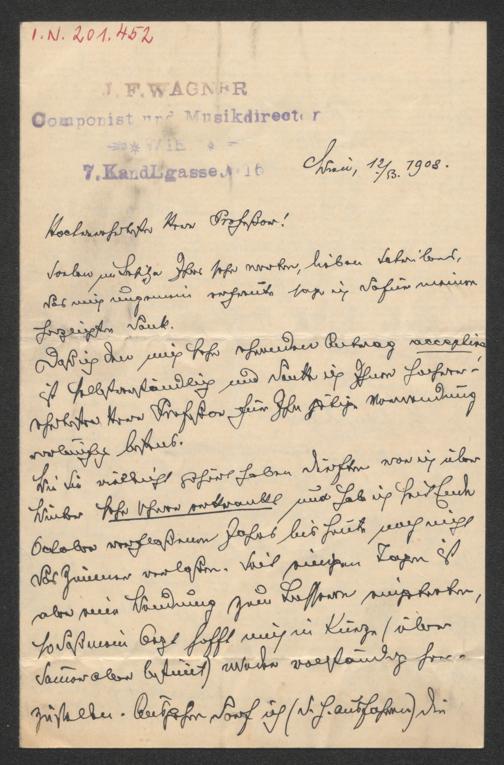 I.N. 201.452
J. F. WAGNER
Componist und Musikdirector
WIEN
7. Kandlgasse No 16
Wien, 12/3. 1908.
Hochverehrtester Herr Professor!
Soeben im Besitze Ihres sehr werten, lieben Schreibens,
das mich ungemein erfreute sage ich dafür meinen
herzlichsten Dank.
Daß ich den mich sehr ehrenden Antrag acceptire
ist selbstverständlich und danke ich Ihnen hochver-
ehrtester Herr Professor für Ihre gütige Verwendung
vorläufig bestens.
Wie Sie vielleicht gehört haben dürften war ich über
Winter sehr schwer erkrankt und hab ich seit Ende
October verflossenen Jahres bis heute noch nicht
das Zimmer verlassen. Seit einigen Tagen ist
aber eine Wendung zum Besseren eingetreten,
so daß mein Arzt hofft mich in Kürze (über
Sommer aber bestimmt) wieder vollständig her-
zustellen. Ausgehen darf ich (d. h. ausfahren) die